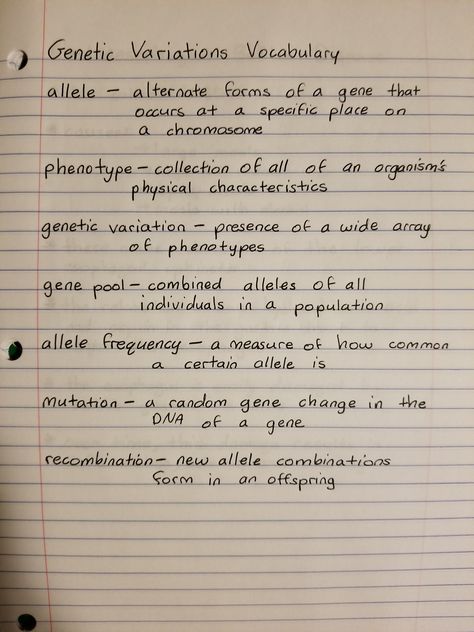 Genetic Variations Vocabulary
allele – alternate forms of a gene that
occurs at a specific place on
a chromosome
phenotype – collection of all of an organism's
physical characteristics
genetic variation – presence of a wide array
of phenotypes
gene pool – combined alleles of all
individuals in a population
allele frequency – a measure of how common
a certain allele is
mutation – a random gene change in the
DNA of a gene
recombination – new allele combinations
form in an offspring